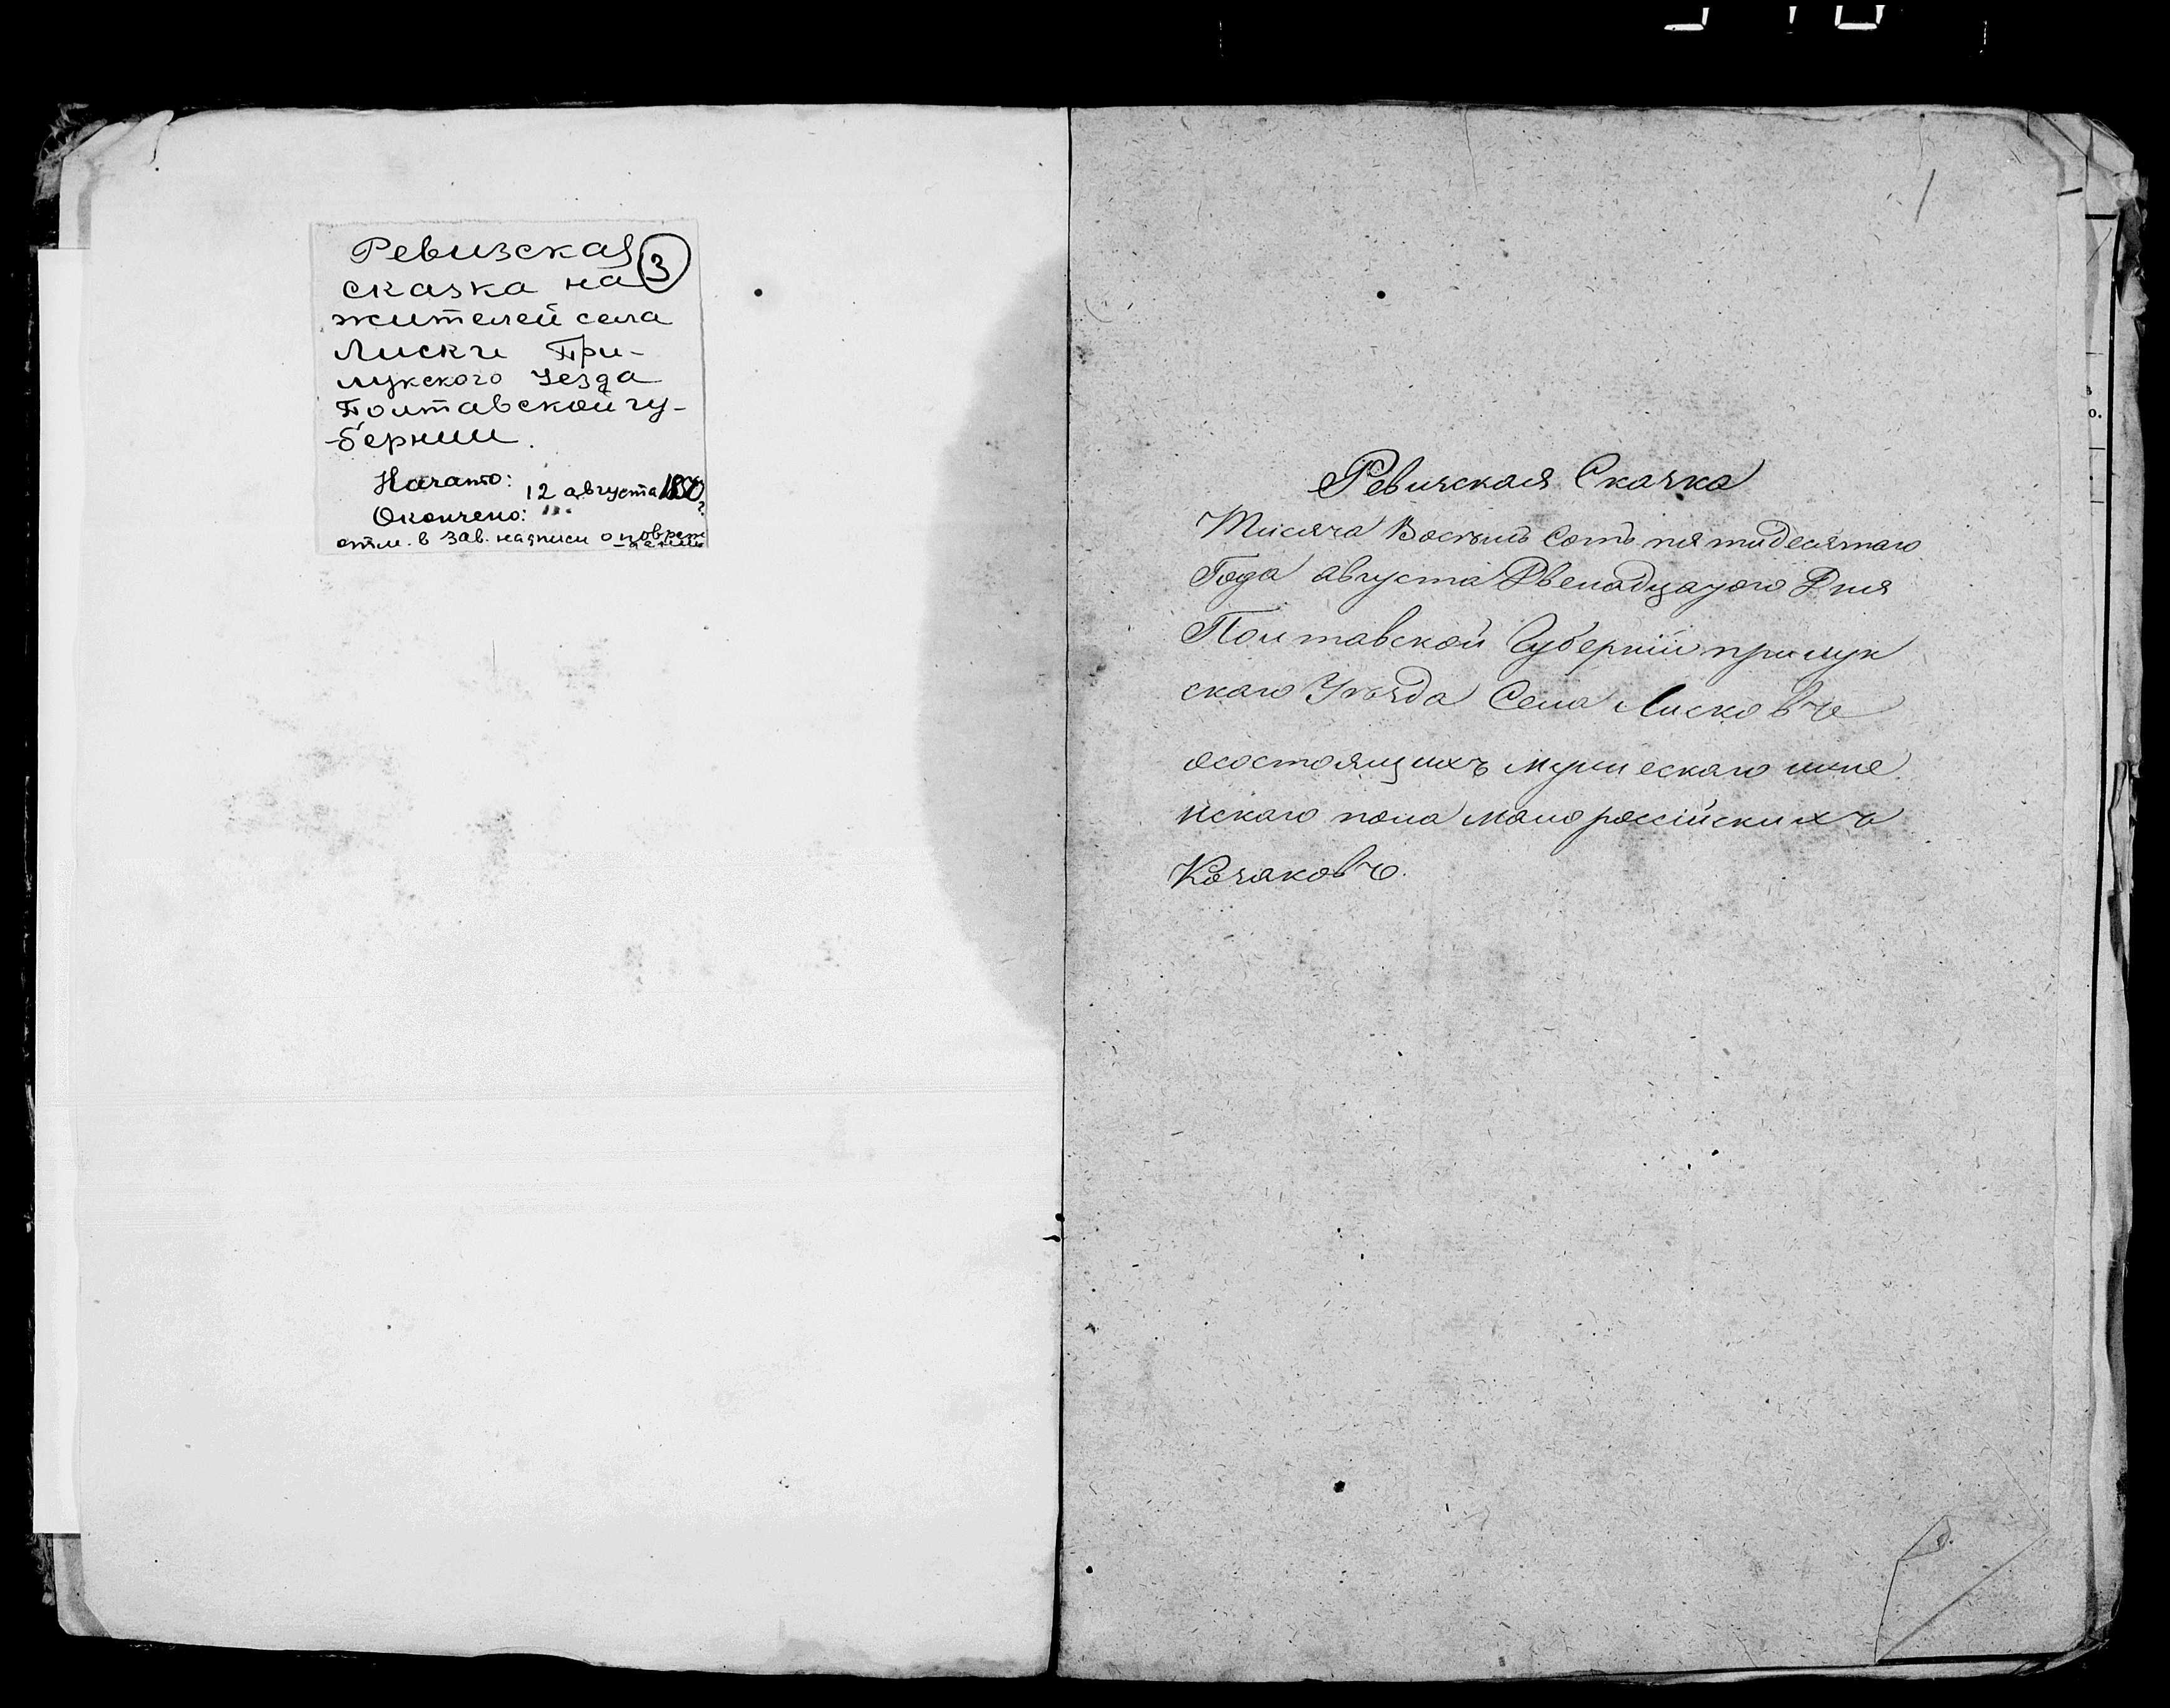 Ревизская
сказка на 3
жителей села
Лиски При-
лукского Уезда
Полтавской гу-
-бернии.
Начато: 12 августа 1850
Окончено:
отм. в зав. надписи о повреж
-дении
1
Ревизская Сказка
Тисяча Восемь Сотъ пятидесятаго
Года августа Двенадцатого Дня
Полтавской Губерніи прилук
скаго Уѣзда Села Лисковъ
осостоящихъ мужескаго иже
нскаго пола малороссійскихъ
Козаковъ.